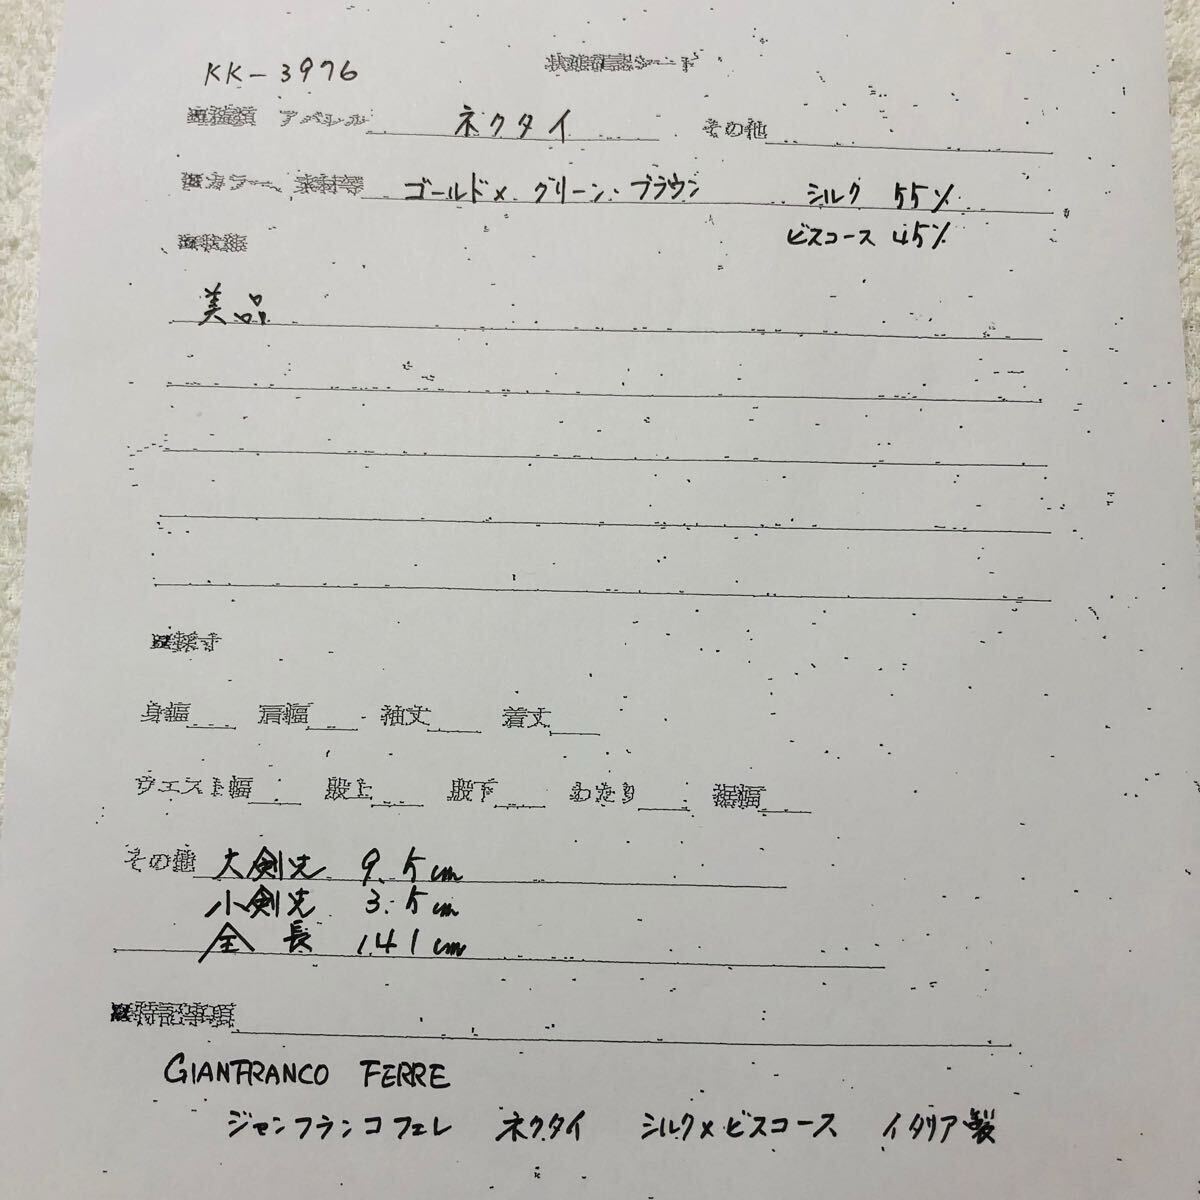 KK-3976
状態確認シート
※種類 アパレル ネクタイ その他
※カラー、素材等 ゴールド× グリーン、ブラウン シルク 55%
ビスコース 45%
※状態
美品
※採寸
身幅 肩幅 袖丈 着丈
ウエスト幅 股上 股下 わたり 裾幅
その他 大剣先 9.5cm
小剣先 3.5cm
全長 141cm
※特記事項
GIANFRANCO FERRE
ジャンフランコフェレ ネクタイ シルク×ビスコース イタリア製